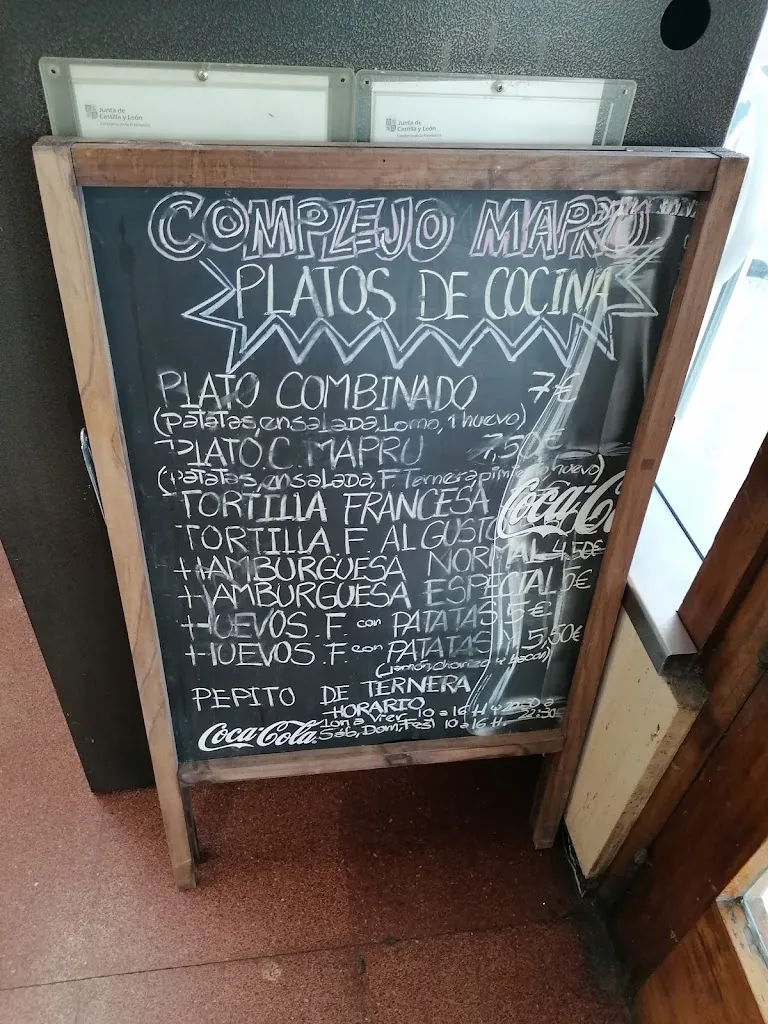 Junta de
Castilla y León
Junta de
Castilla y León
COMPLEJO MAPRU
PLATOS DE COCINA
PLATO COMBINADO 7€
(patatas, ensalada, Lomo, 1 huevo)
PLATO C. MAPRU 7,50€
(patatas, ensalada, F. Ternera huevo)
TORTILLA FRANCESA
TORTILLA F. AL GUSTO
HAMBURGUESA NORMAL 4,50€
HAMBURGUESA ESPECIAL 5€
HUEVOS F. con PATATAS 5€
HUEVOS F. con PATATAS Y 5,50€
(Jamón, chorizo y bacon)
PEPITO DE TERNERA
HORARIO
Lun a Vier 10 a 16 H y
Sáb, Dom, Fes 10 a 16 H.
Coca-Cola
Coca-C